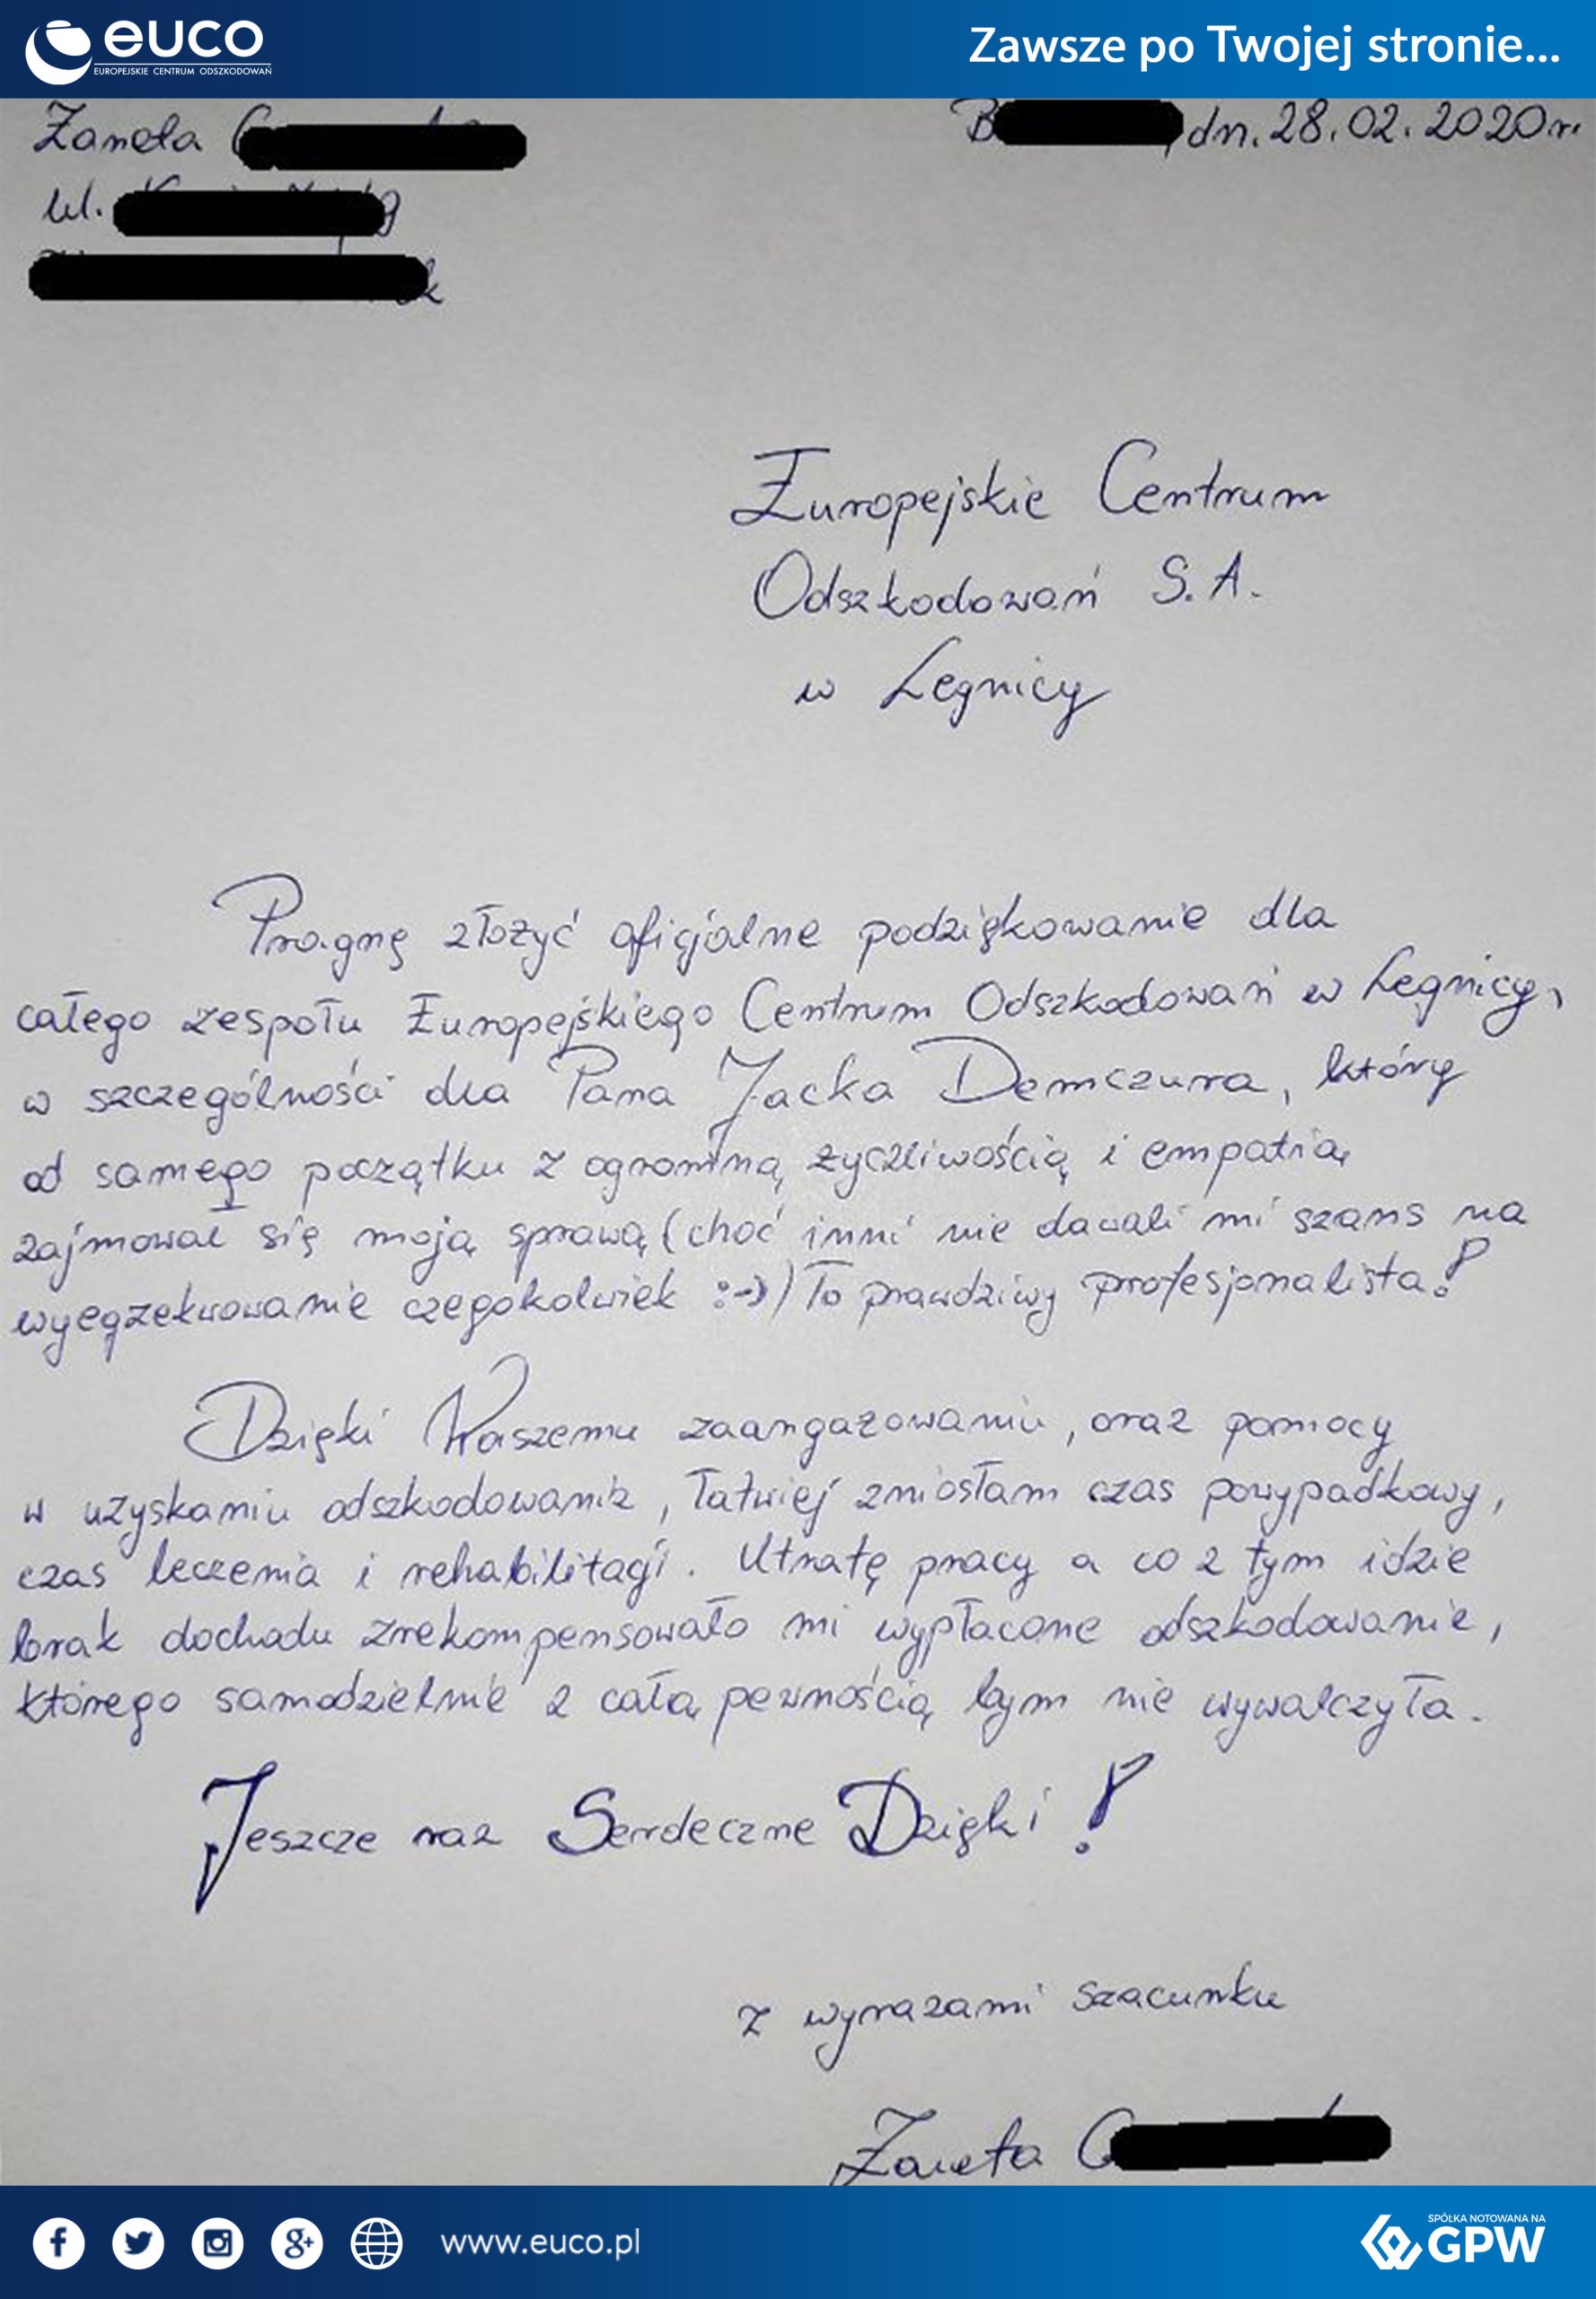 euco
EUROPEJSKIE CENTRUM ODSZKODOWAŃ
Zawsze po Twojej stronie...
Żaneta
B dn. 28.02.2020 r.
ul.
Europejskie Centrum
Odszkodowań S.A.
w Legnicy
Pragnę złożyć oficjalne podziękowanie dla
całego zespołu Europejskiego Centrum Odszkodowań w Legnicy,
w szczególności dla Pana Jacka Demczura, który
od samego początku z ogromną życzliwością i empatią
zajmował się moją sprawą (choć inni nie dawali mi szans na
wyegzekwowanie czegokolwiek :-)) To prawdziwy profesjonalista!
Dzięki Waszemu zaangażowaniu, oraz pomocy
w uzyskaniu odszkodowania, łatwiej zniosłam czas powypadkowy,
czas leczenia i rehabilitacji. Utratę pracy a co z tym idzie
brak dochodu zrekompensowało mi wypłacone odszkodowanie,
którego samodzielnie z całą pewnością bym nie wywalczyła.
Jeszcze raz Serdeczne Dzięki!
z wyrazami szacunku
Żaneta
www.euco.pl
SPÓŁKA NOTOWANA NA
GPW